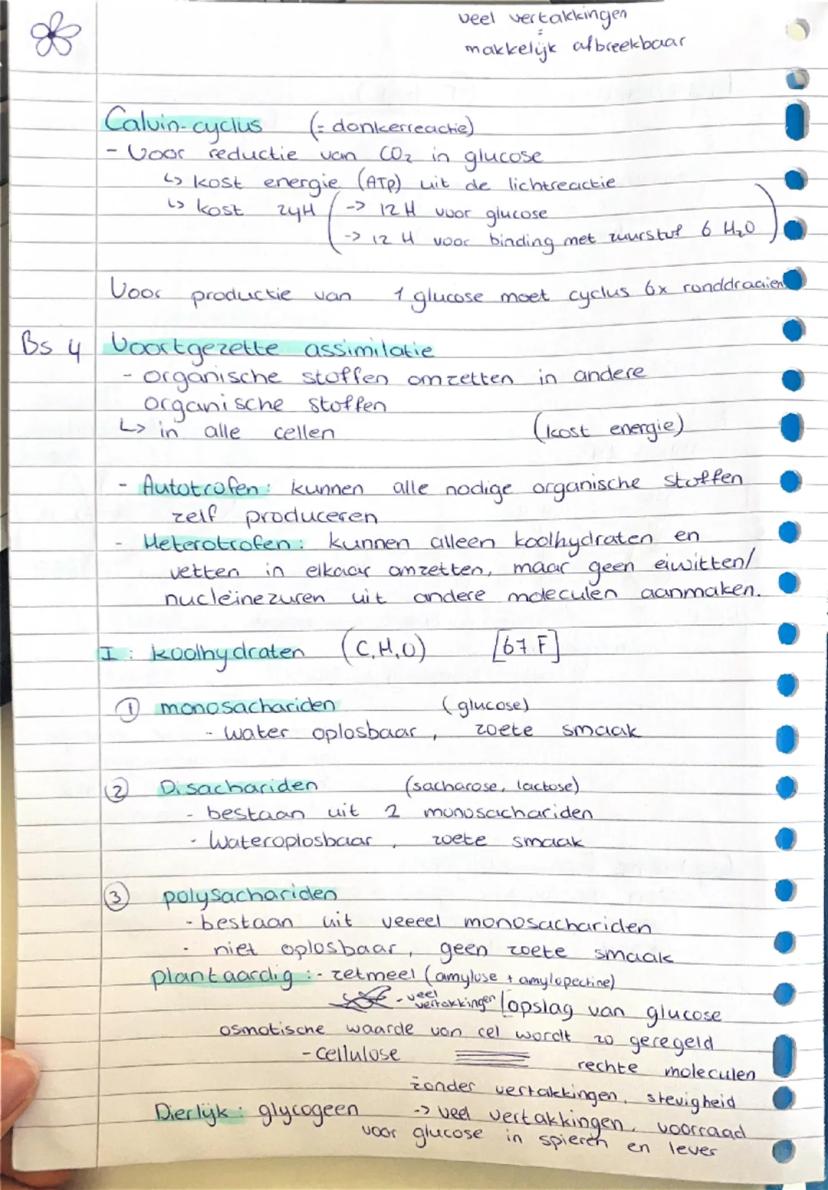 veel vertakkingen
=
makkelijk afbreekbaar
Calvin-cyclus (= donkerreactie)
- Voor reductie van CO₂ in glucose
↳ kost energie (ATP) uit de lichtreactie
↳ kost 24H (-> 12H voor glucose
-> 12 H voor binding met zuurstof 6 H₂O)
Voor productie van 1 glucose moet cyclus 6x ronddraaien
Bs 4 Voortgezette assimilatie
- organische stoffen omzetten in andere
organische stoffen
↳ in alle cellen (kost energie)
- Autotrofen: kunnen alle nodige organische stoffen
zelf produceren
- Heterotrofen: kunnen alleen koolhydraten en
vetten in elkaar omzetten, maar geen eiwitten/
nucleïnezuren uit andere moleculen aanmaken.
I: koolhydraten (C,H,O) [67 F]
① monosachariden (glucose)
- water oplosbaar, zoete smaak
② Disachariden (sacharose, lactose)
- bestaan uit 2 monosachariden
- Wateroplosbaar, zoete smaak
③ polysachariden
- bestaan uit veeeel monosachariden
- niet oplosbaar, geen zoete smaak
plantaardig: - zetmeel (amylose + amylopectine)
- veel vertakkingen / opslag van glucose
osmotische waarde van cel wordt zo geregeld
- cellulose rechte moleculen
zonder vertakkingen, stevigheid
Dierlijk: glycogeen -> veel vertakkingen, voorraad
voor glucose in spieren en lever